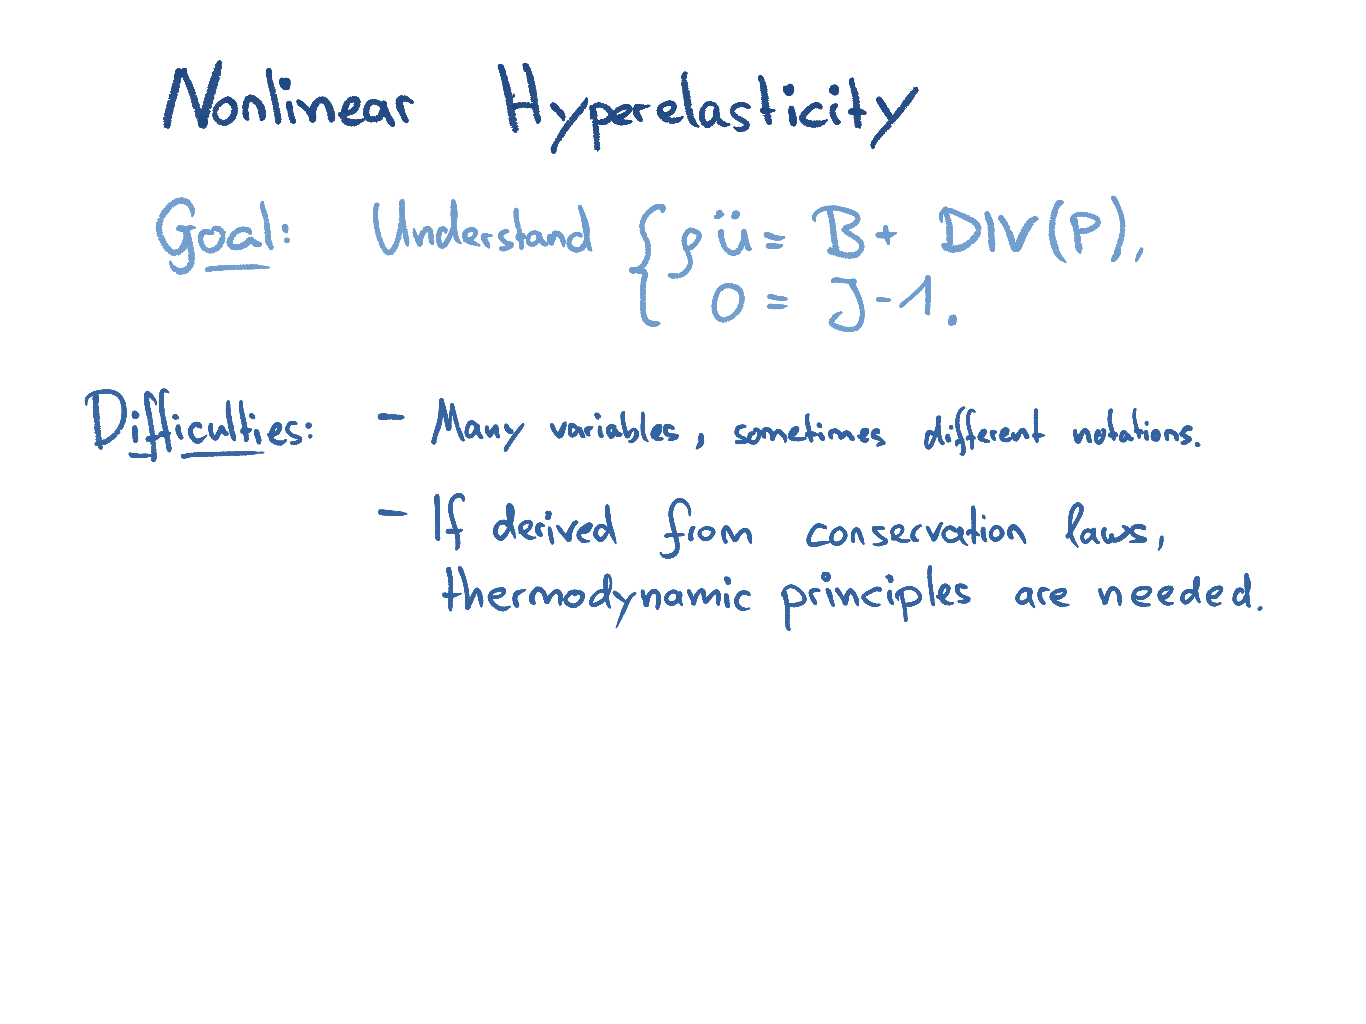 Nonlinear Hyperelasticity
Goal: Understand { ρü = B + DIV(P),
0 = J - 1.
Difficulties: - Many variables, sometimes different notations.
- If derived from conservation laws,
thermodynamic principles are needed.